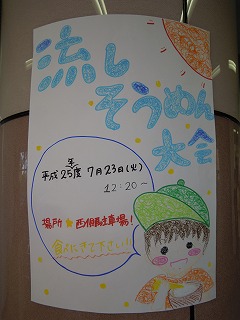 流し
そうめん
大会
平成25年度 7月23日(火)
12:20～
場所★西側駐車場!
食べにきて下さい!!